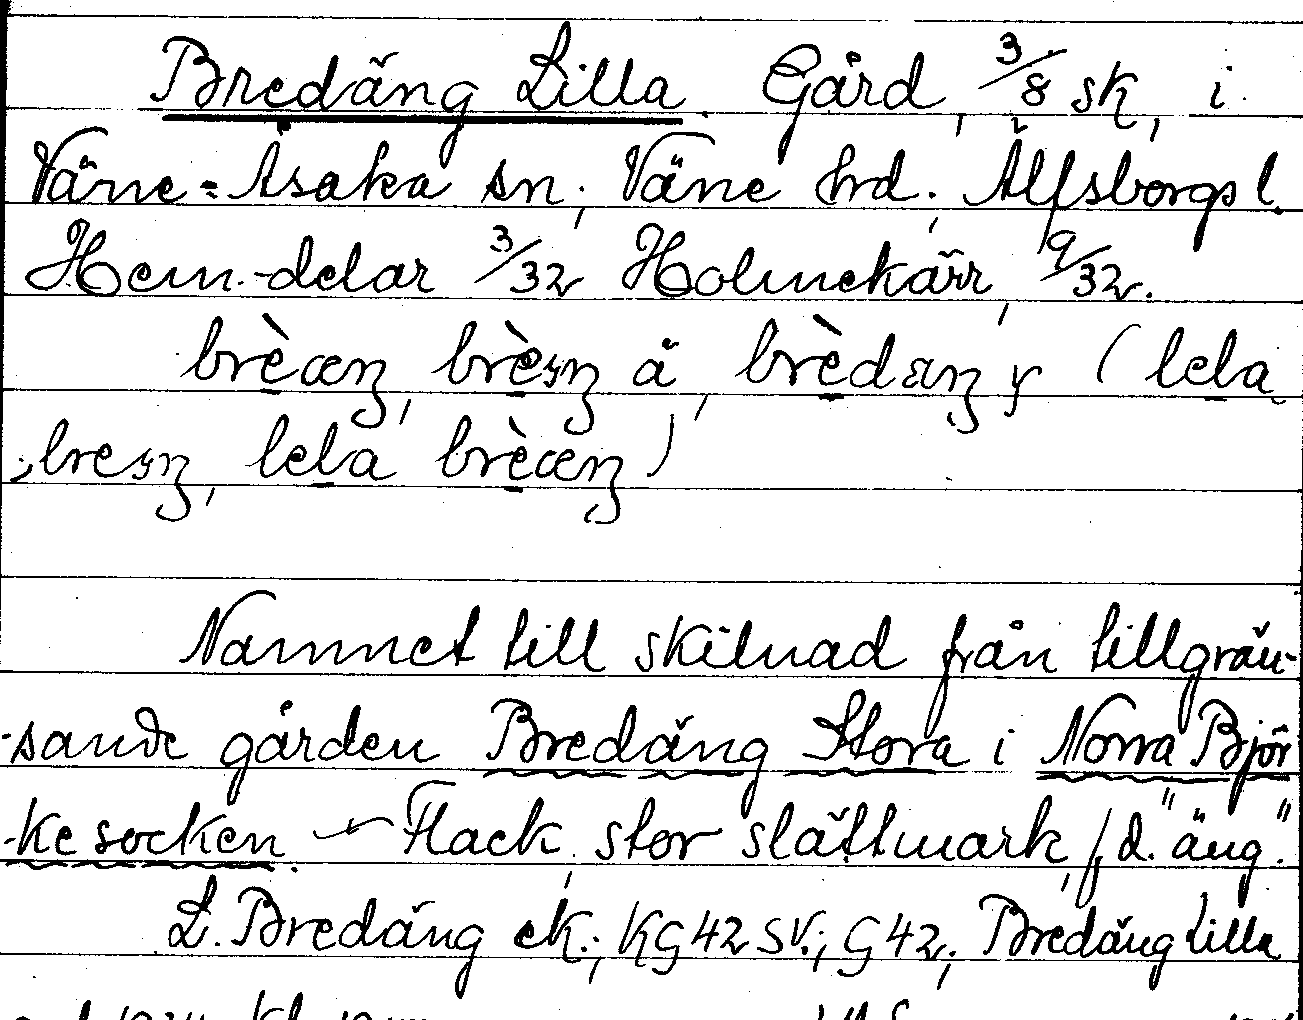 Bredäng Lilla. Gård, 3/8 sk, i
Väne=Åsaka sn, Väne hrd, Älfsborgs l.
Hem.-delar 3/32 Holmekärr, 9/32.
brèæŋ, å, brèdæŋ (lela
lela brèæŋ)
Namnet till skilnad från tillgrän-
-sande gården Bredäng Stora i Norra Björ
-ke socken. — Flack, stor slättmark, f.d. "äng".
L. Bredäng ek.; KG42 SV.; G42; Bredäng Lilla